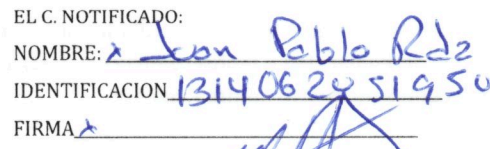 EL C. NOTIFICADO:
NOMBRE: x Juan Pablo Rdz
IDENTIFICACION 1314062051950
FIRMA x